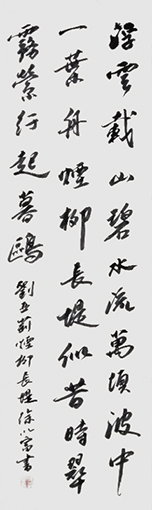 浮雲載山碧水流萬頃波中
一葉舟煙柳長堤似昔時翠
霧縈行起暮鷗
劉
煙柳長堤徐
書